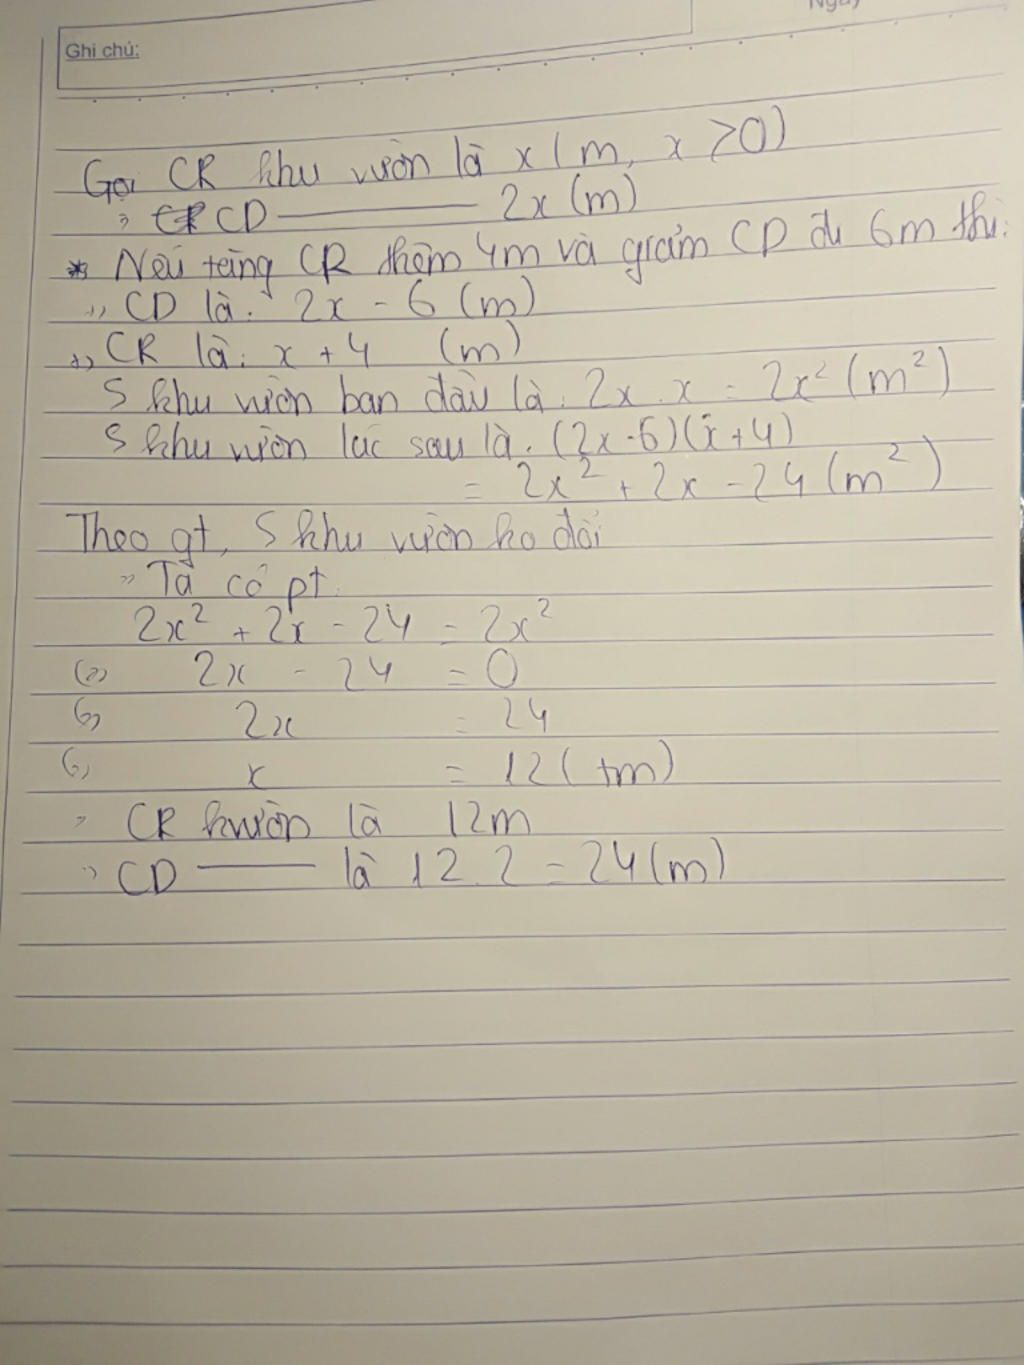 Ngày
Ghi chú:
Gọi CR khu vườn là x (m, x > 0)
=> CD ——— 2x (m)
* Nếu tăng CR thêm 4m và giảm CD đi 6m thì:
=> CD là: 2x - 6 (m)
=> CR là: x + 4 (m)
S khu vườn ban đầu là: 2x . x = 2x² (m²)
S khu vườn lúc sau là: (2x - 6)(x + 4)
= 2x² + 2x - 24 (m²)
Theo gt, S khu vườn ko đổi
=> Ta có pt:
2x² + 2x - 24 = 2x²
(=) 2x - 24 = 0
(=) 2x = 24
(=) x = 12 (tm)
=> CR kvườn là 12m
=> CD ——— là 12.2 = 24 (m)